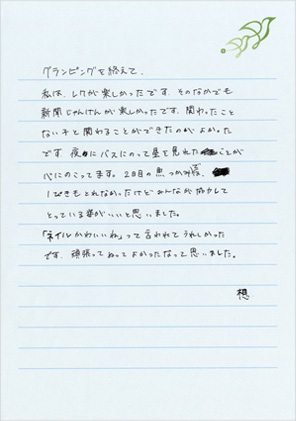 グランピングを終えて、
私は、レクが楽しかったです。そのなかでも
新聞じゃんけんが楽しかったです。関わったこと
ない子と関わることができたのがよかった
です。夜にバスにのって星を見れたことが
心にのこってます。2日目の魚つかみは、
1ぴきもとれなかったけどみんなが協力して
とっている姿がいいと思いました。
「ネイルかわいいね」って言われてうれしかった
です。頑張ってぬってよかったなって思いました。
想